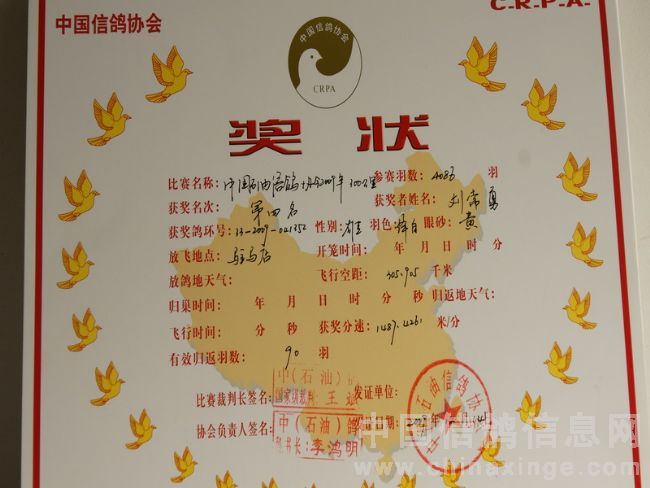 中国信鸽协会
C-R-P-A-
中国信鸽协会
CRPA
奖 状
比赛名称：中国石油信鸽 2009年 300公里 参赛羽数：4083 羽
获奖名次：第四名 获奖者姓名：刘 勇
获奖鸽环号：13-2009-021352 性别：雄 羽色：绛白 眼砂：黄
放飞地点：驻马店 开笼时间： 年 月 日 时 分
放鸽地天气： 飞行空距：305.905 千米
归巢时间： 年 月 日 时 分 秒 归返地天气：
飞行时间： 分 秒 获奖分速：1487.4261 米/分
有效归返羽数：90 羽
中（石油）
比赛裁判长签名： 国家级裁判 王 发证单位：
石油信鸽协
中（石油）鸽
协会负责人签名： 秘书长：李鸿明 发证日期： 年 月
中国信鸽信息网
www.chinaxinge.com